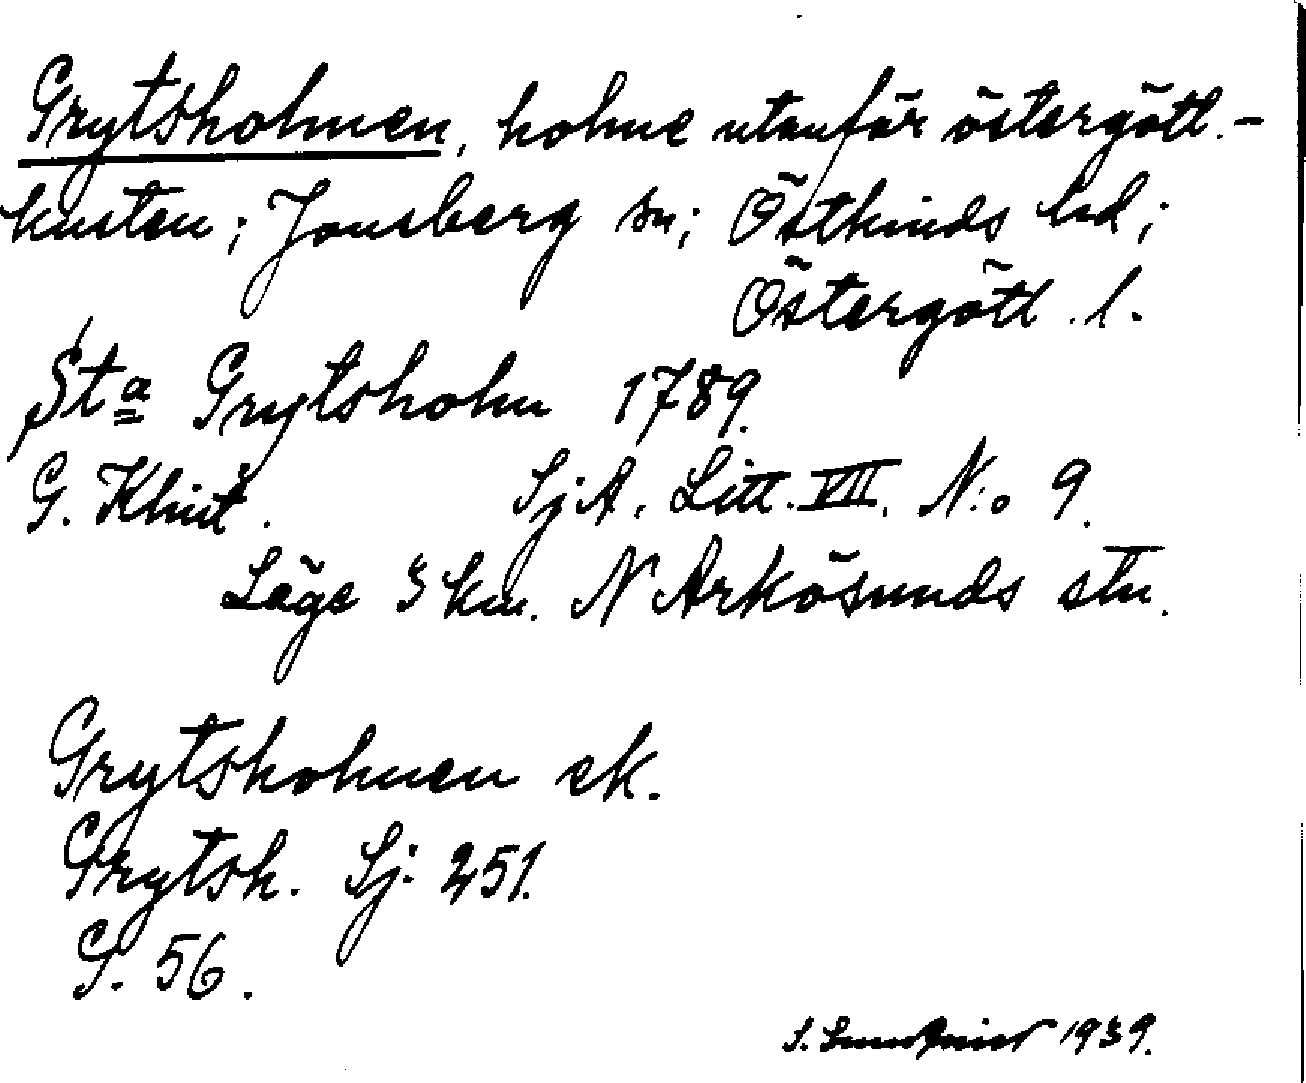 Grytsholmen, holme utanför östergötl.-
kusten; Jonsberg sn; Östkinds hd;
Östergötl. l.
St<u>a</u> Grytsholm 1789.
G. Klint. SjA, Litt. VII. N:o 9.
Läge 3 km. N Arkösunds stn.
Grytsholmen ek.
Grytsh. Sj: 251.
G. 56.
S. Lundqvist 1939.